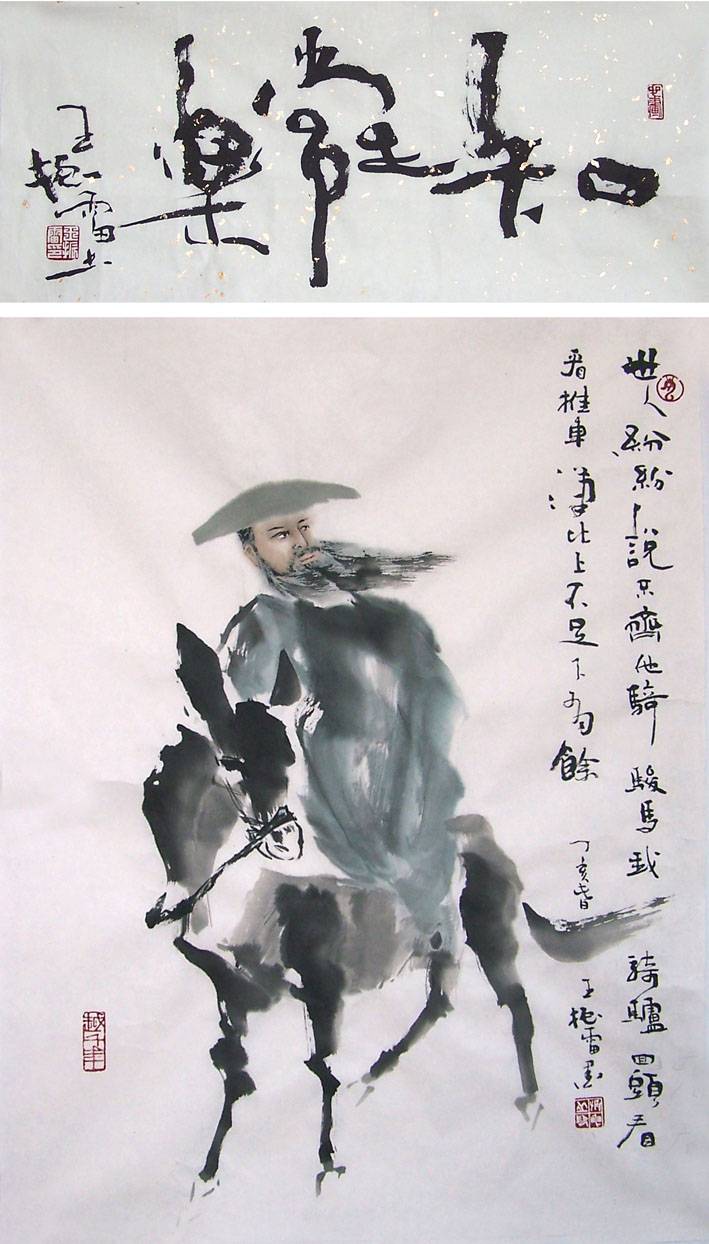 知足常樂
世人紛紛說不齊他騎駿馬我騎驢回頭看
看推車漢比上不足下有餘
丁亥春